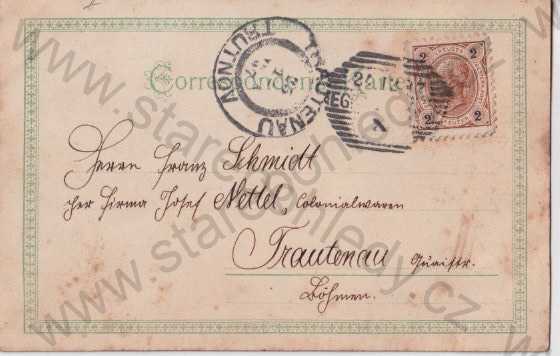 Correspondenz-Karte
TRAUTENAU
TRUTNOV
1
2 2
2 2
Herrn Franz Schmidt
per Firma Josef Nettel, Colonialwaren
Trautenau
Böhmen.
www.starepohledy.cz